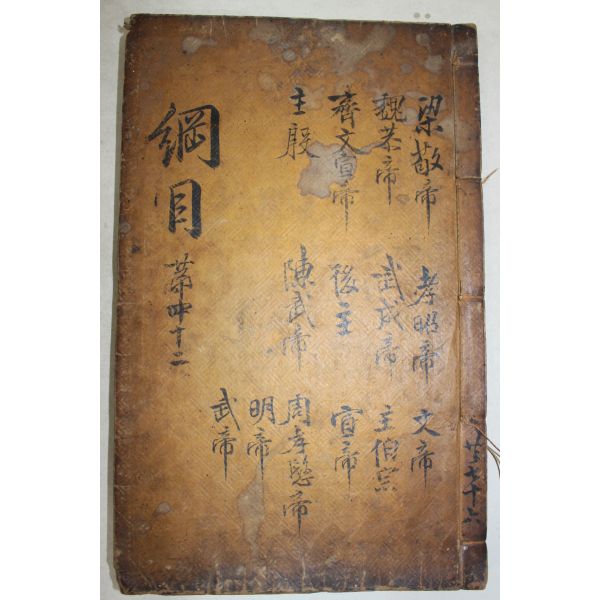 梁敬帝
魏恭帝
齊文宣帝
主殷
孝昭帝
武成帝
後主
陳武帝
文帝
主伯宗
宣帝
周孝愍帝
明帝
武帝
綱目
第四十二
共七十六